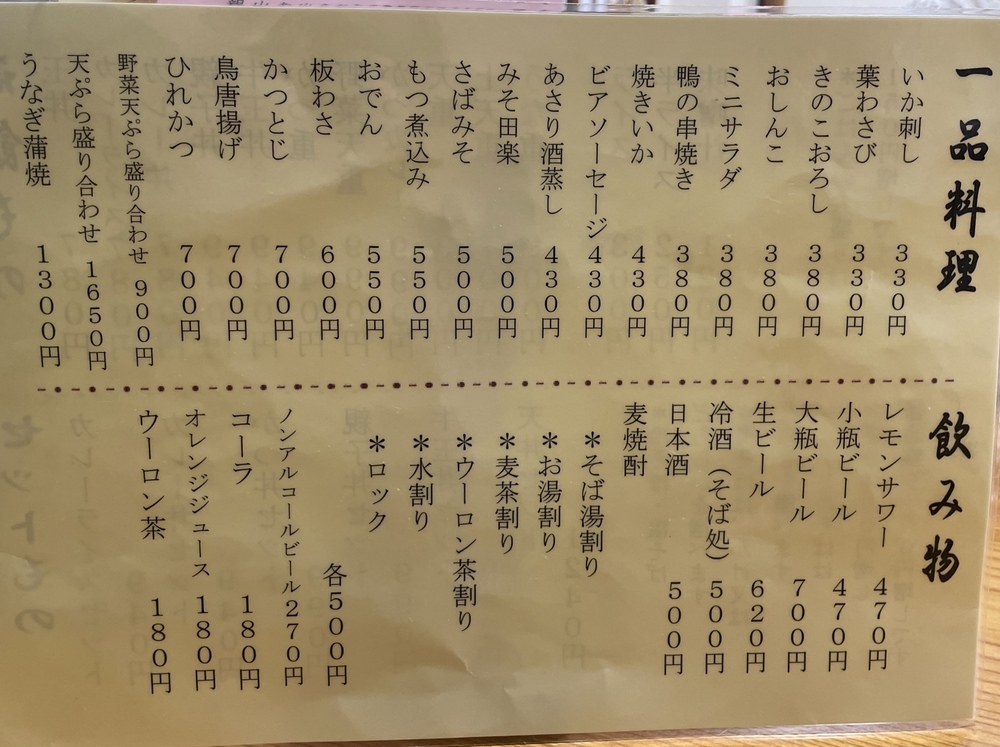 一品料理
いか刺し 330円
葉わさび 330円
きのこおろし 380円
おしんこ 380円
ミニサラダ 380円
鴨の串焼き 380円
焼きいか 430円
ビアソーセージ 430円
あさり酒蒸し 430円
みそ田楽 500円
さばみそ 500円
もつ煮込み 550円
おでん 550円
板わさ 600円
かつとじ 700円
鳥唐揚げ 700円
ひれかつ 700円
野菜天ぷら盛り合わせ 900円
天ぷら盛り合わせ 1650円
うなぎ蒲焼 1300円
飲み物
レモンサワー 470円
小瓶ビール 470円
大瓶ビール 700円
生ビール 620円
冷酒（そば処） 500円
日本酒 500円
麦焼酎
＊そば湯割り
＊お湯割り
＊麦茶割り
＊ウーロン茶割り
＊水割り
＊ロック
各500円
ノンアルコールビール 270円
コーラ 180円
オレンジジュース 180円
ウーロン茶 180円